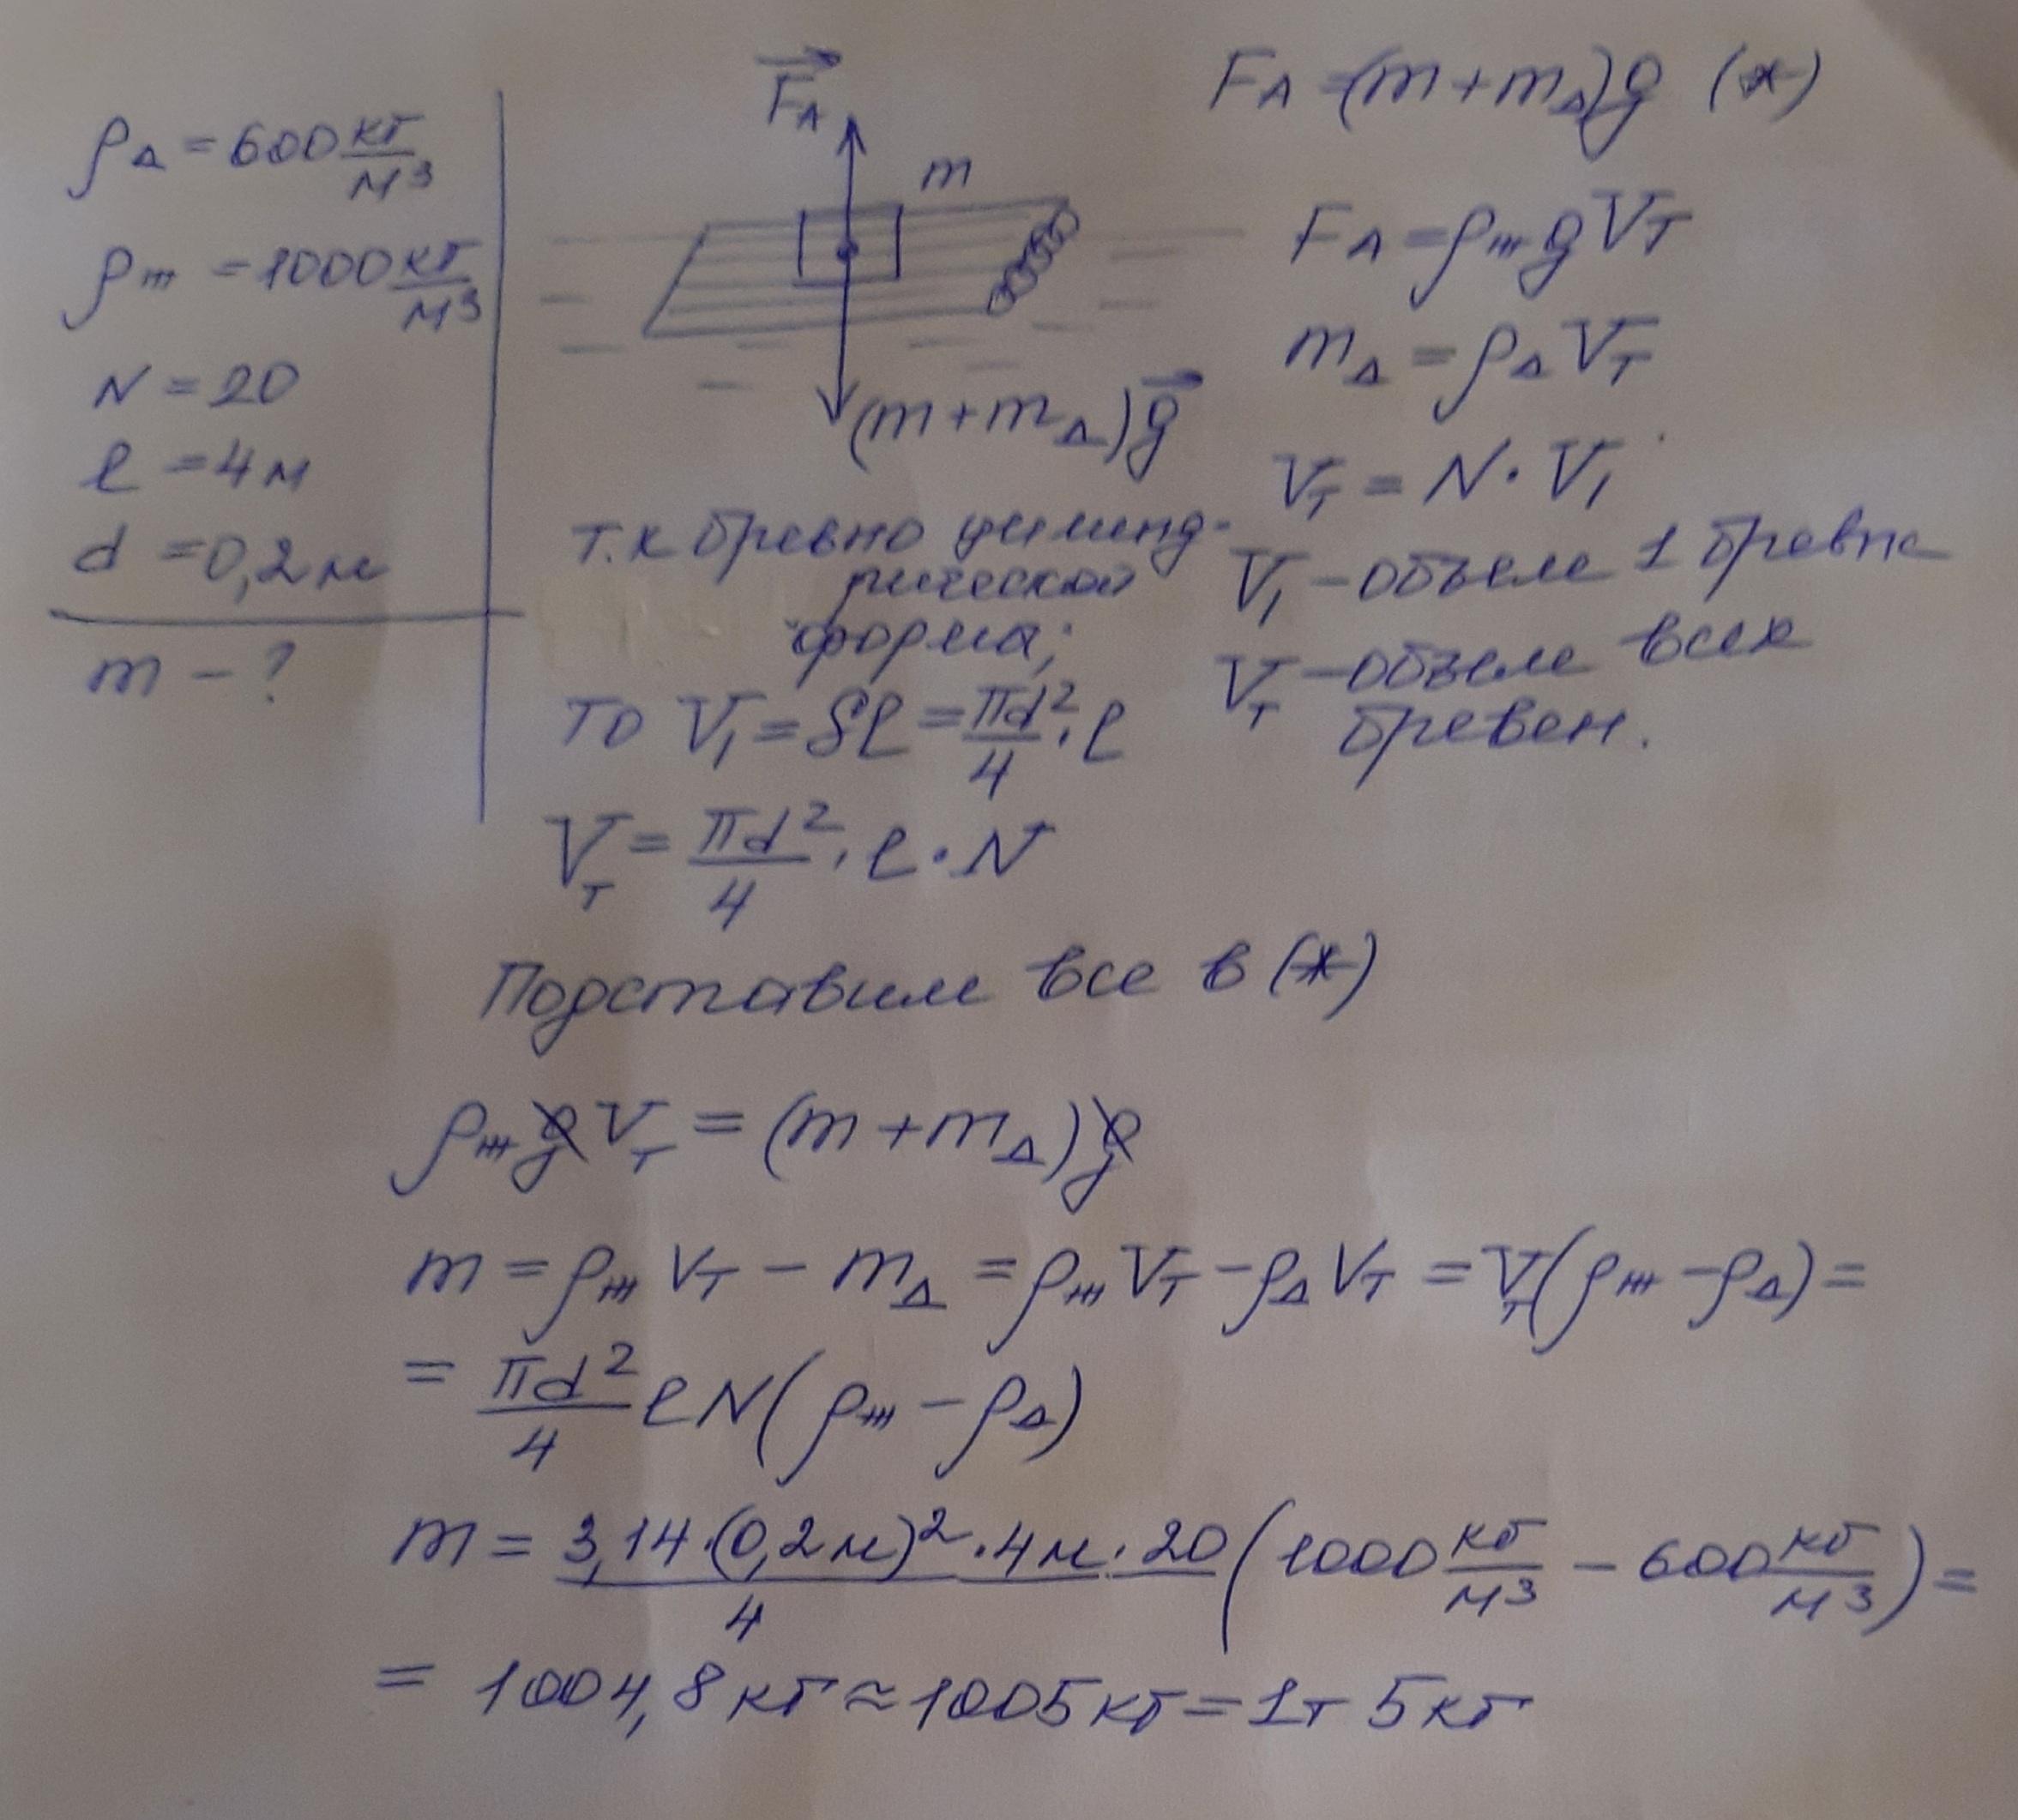 ρ_Δ = 600 кг/м³
ρ_ж = 1000 кг/м³
N = 20
l = 4 м
d = 0,2 м
m - ?
F_A
m
(m + m_Δ)g
F_A = (m + m_Δ)g (*)
F_A = ρ_ж g V_T
m_Δ = ρ_Δ V_T
V_T = N · V₁
V₁ - объем 1 бревна
V_T - объем всех
бревен.
т.к бревно цилинд-
рической
форма;
то V₁ = Sl = πd²/4 · l
V_T = πd²/4 · l · N
Подставим все в (*)
ρ_ж g V_T = (m + m_Δ) g
m = ρ_ж V_T - m_Δ = ρ_ж V_T - ρ_Δ V_T = V_T(ρ_ж - ρ_Δ) =
= πd²/4 l N(ρ_ж - ρ_Δ)
m = 3,14·(0,2 м)²·4м·20/4 (1000 кг/м³ - 600 кг/м³) =
= 1004,8 кг ≈ 1005 кг = 1т 5 кг